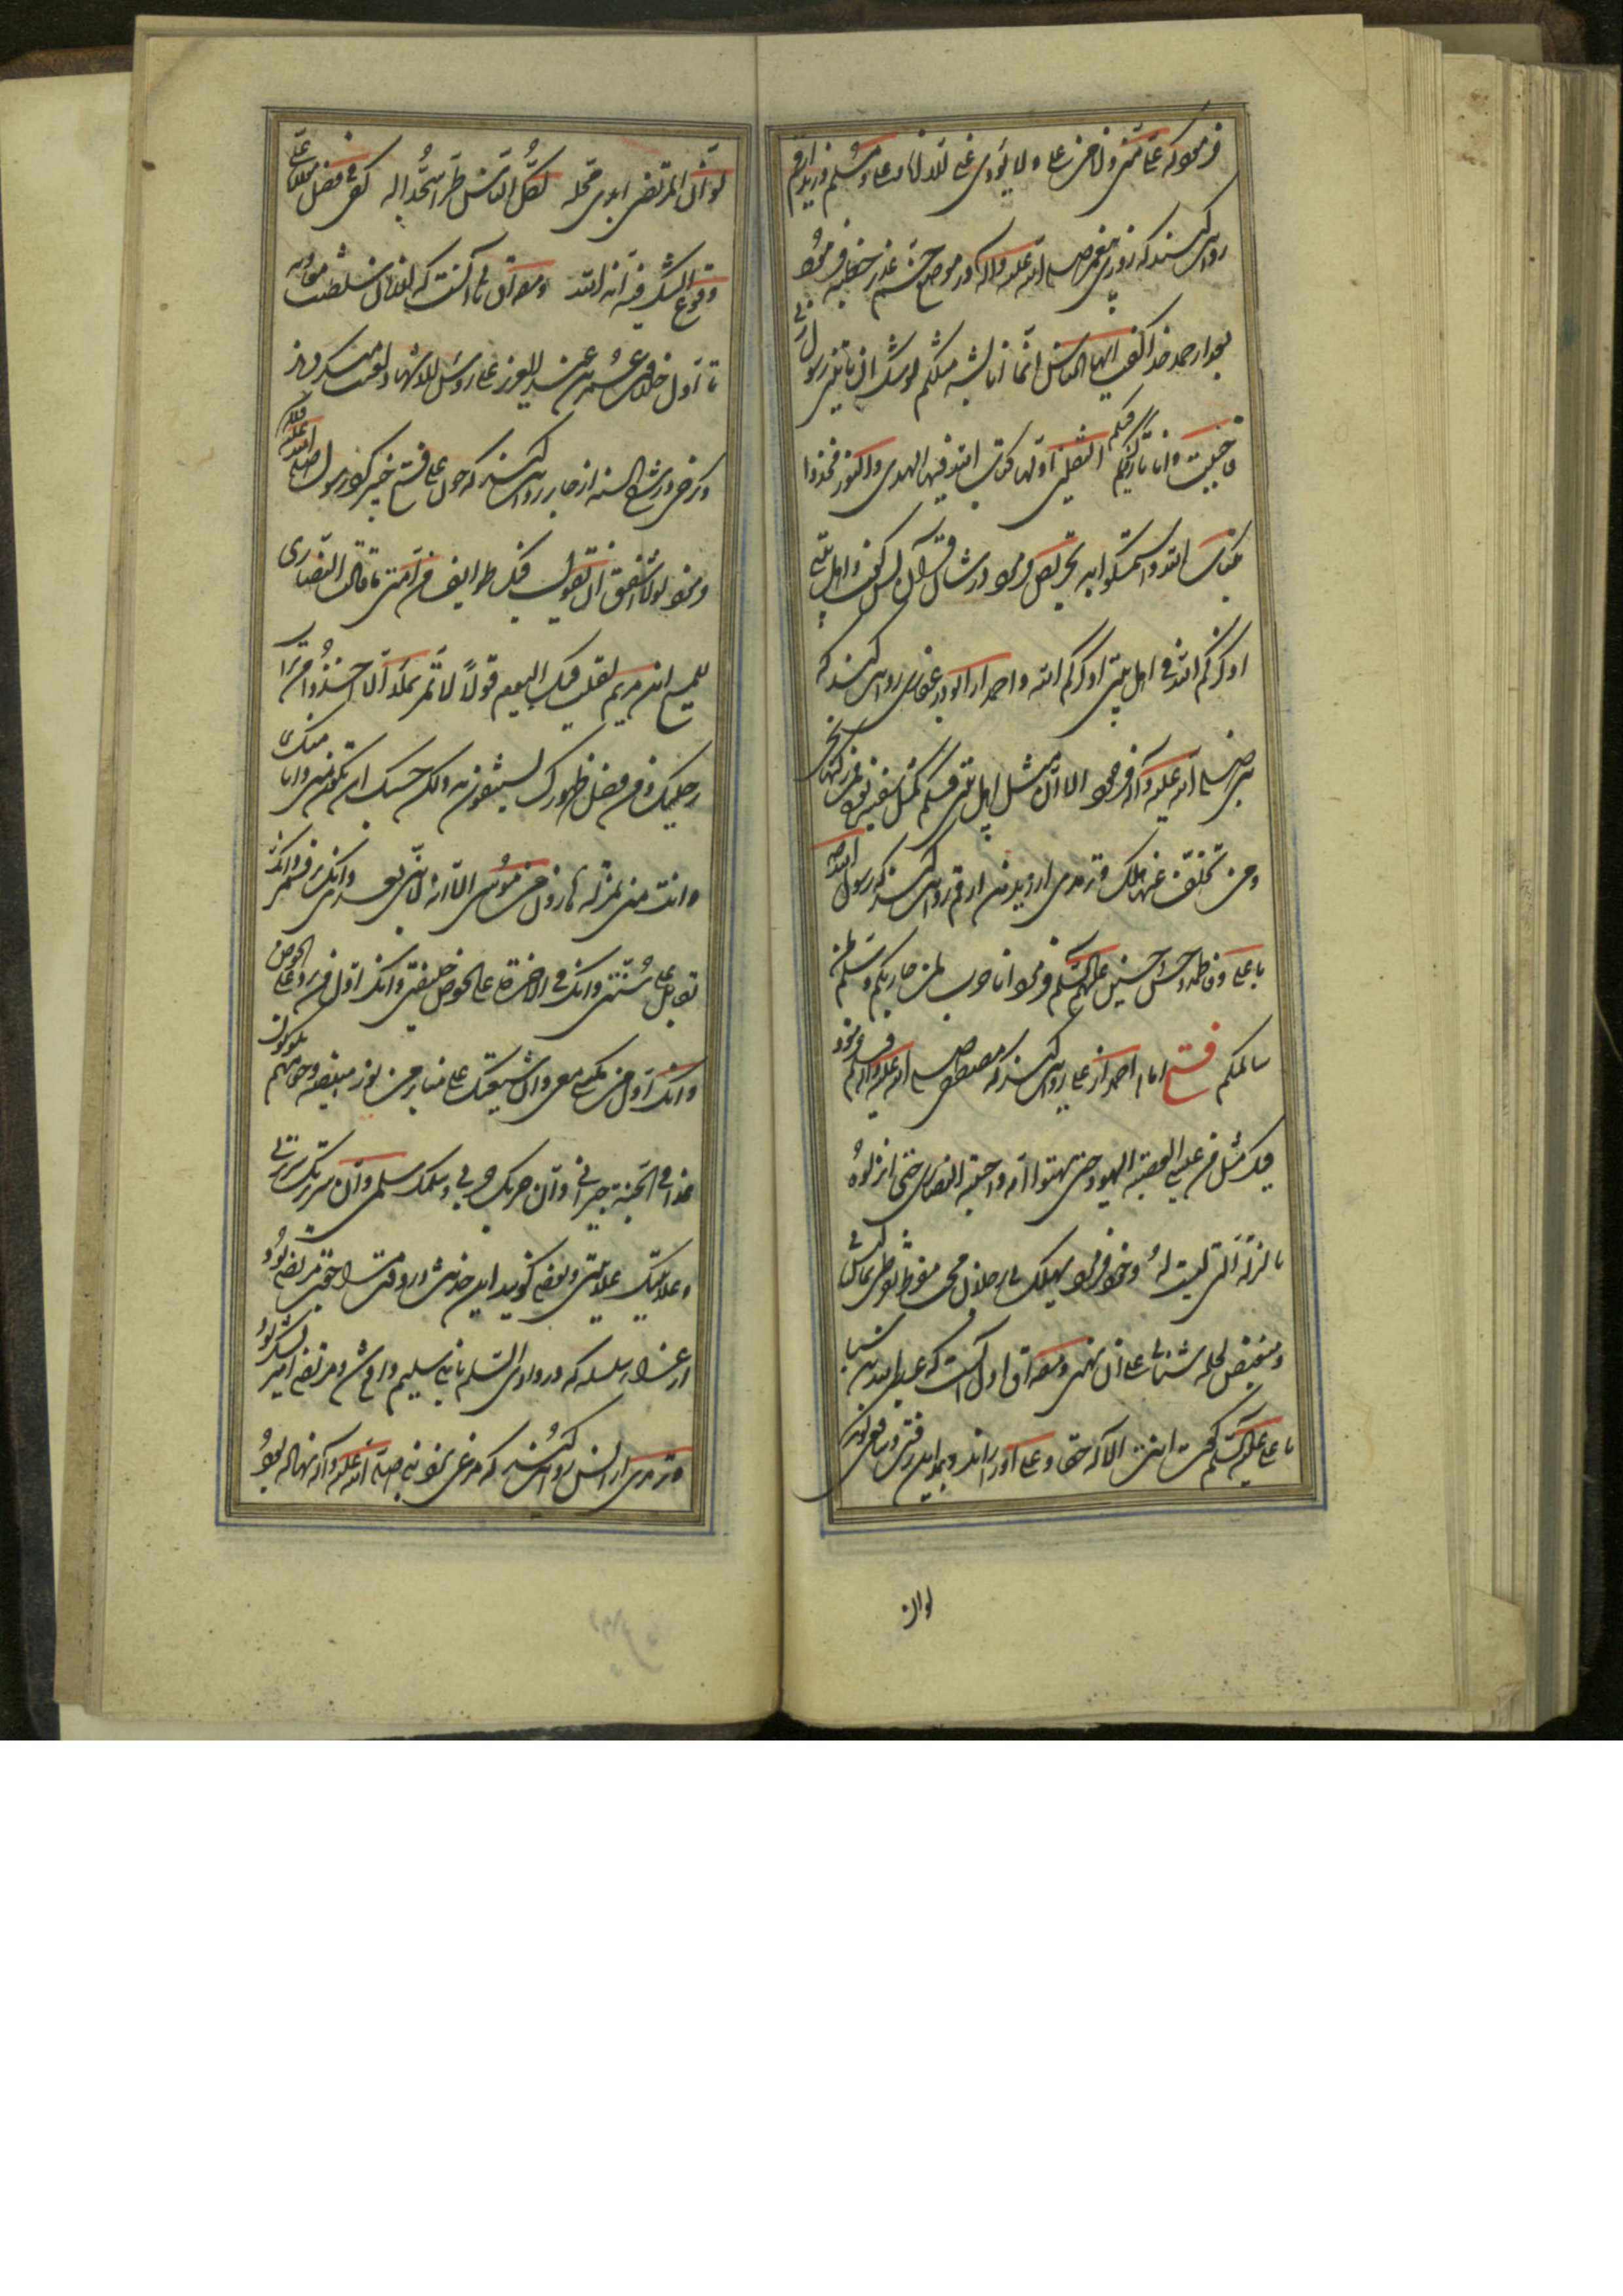 فرمود که علی منی وانا من علی ولا یؤدی عنی الا انا او علی ومسلم از زید ارقم
روایت کند که روزی پیغمبر صلی الله علیه وآله در موضع خم غدیر خطبه فرمود
بعد از حمد خدا گفت ایها الناس انما انا بشر مثلکم یوشک ان یاتینی رسول ربی
فاجیب وانا تارک فیکم الثقلین اولهما کتاب الله فیه الهدی والنور فخذوا
بکتاب الله واستمسکوا به تحریص فرمود در شان قرآن پس گفت واهل بیتی
اذکرکم الله فی اهل بیتی اذکرکم الله واحمد از ابوذر غفاری روایت کند که
نبی صلی الله علیه وآله فرمود الا ان مثل اهل بیتی فیکم مثل سفینة نوح من رکبها نجی
ومن تخلف عنها هلک وترمذی از زید بن ارقم روایت کند که رسول الله
با علی وفاطمه وحسن وحسین علیهم السلم فرمود انا حرب لمن حاربکم وسلم لمن
سالمکم فتح امام احمد از علی روایت کند که مصطفی صلی الله علیه وآله وسلم فرمود
فیک مثل من عیسی ابغضته الیهود حتی بهتوا امه واحبته النصاری حتی انزلوه
بالمنزلة التی لیست له وخود فرمود یهلک فی رجلان محب مفرط یقرظنی بما لیس فی
ومبغض یحمله شنآنی علی ان یبهتنی ومصداق اول آنست که عبدالله بن سبا
با علی علیه السلم گفت انت الاله حقا وعلی او را براند وبمداین رفت وشافعی گوید
لوان
لو ان المرتضی ابدی محله لصار الناس طرا سجدا له کفی فی فضل مولانا علی
وقوع الشک فیه انه الله ومصداق ثانی آنست که از زمان سلطنت معاویه
تا اول خلافت عمر بن عبد العزیز علی رؤس الاشهاد لعنت میکردند
ورکنی در شرح السنه از جابر روایت کند که چون علی فتح خیبر کرد رسول صلی الله علیه وآله
فرمود لولا اشفق ان تقول فیک طوایف من امتی ما قالت النصاری
للمسیح ابن مریم لقلت فیک الیوم قولا لا تمر بملا الا اخذوا من تراب
رجلیک ومن فضل طهورک یستشفون به ولکن حسبک ان تکون منی وانا منک
وانت منی بمنزلة هارون من موسی الا انه لا نبی بعدی وانک تبرئ ذمتی
تقاتل علی سنتی وانک فی الاخرة علی الحوض خلیفتی وانک اول من یرد علی الحوض
وانک اول من یکسی معی وان شیعتک علی منابر من نور مبیضة وجوههم یکونون
غدا فی الجنة جیرانی وان حربک حربی وسلمک سلمی وان سریرتک سریرتی
وعلانیتک علانیتی وبعضی گویند این حدیث در وقت مراجعت مرتضی بود
از غزا سلسله که در وادی السلم با بنی سلیم واقع شد ومرتضی امیر لشکر بود
وترمذی از انس روایت کند که مرغی نزد نبی صلی الله علیه وآله نهاده بود